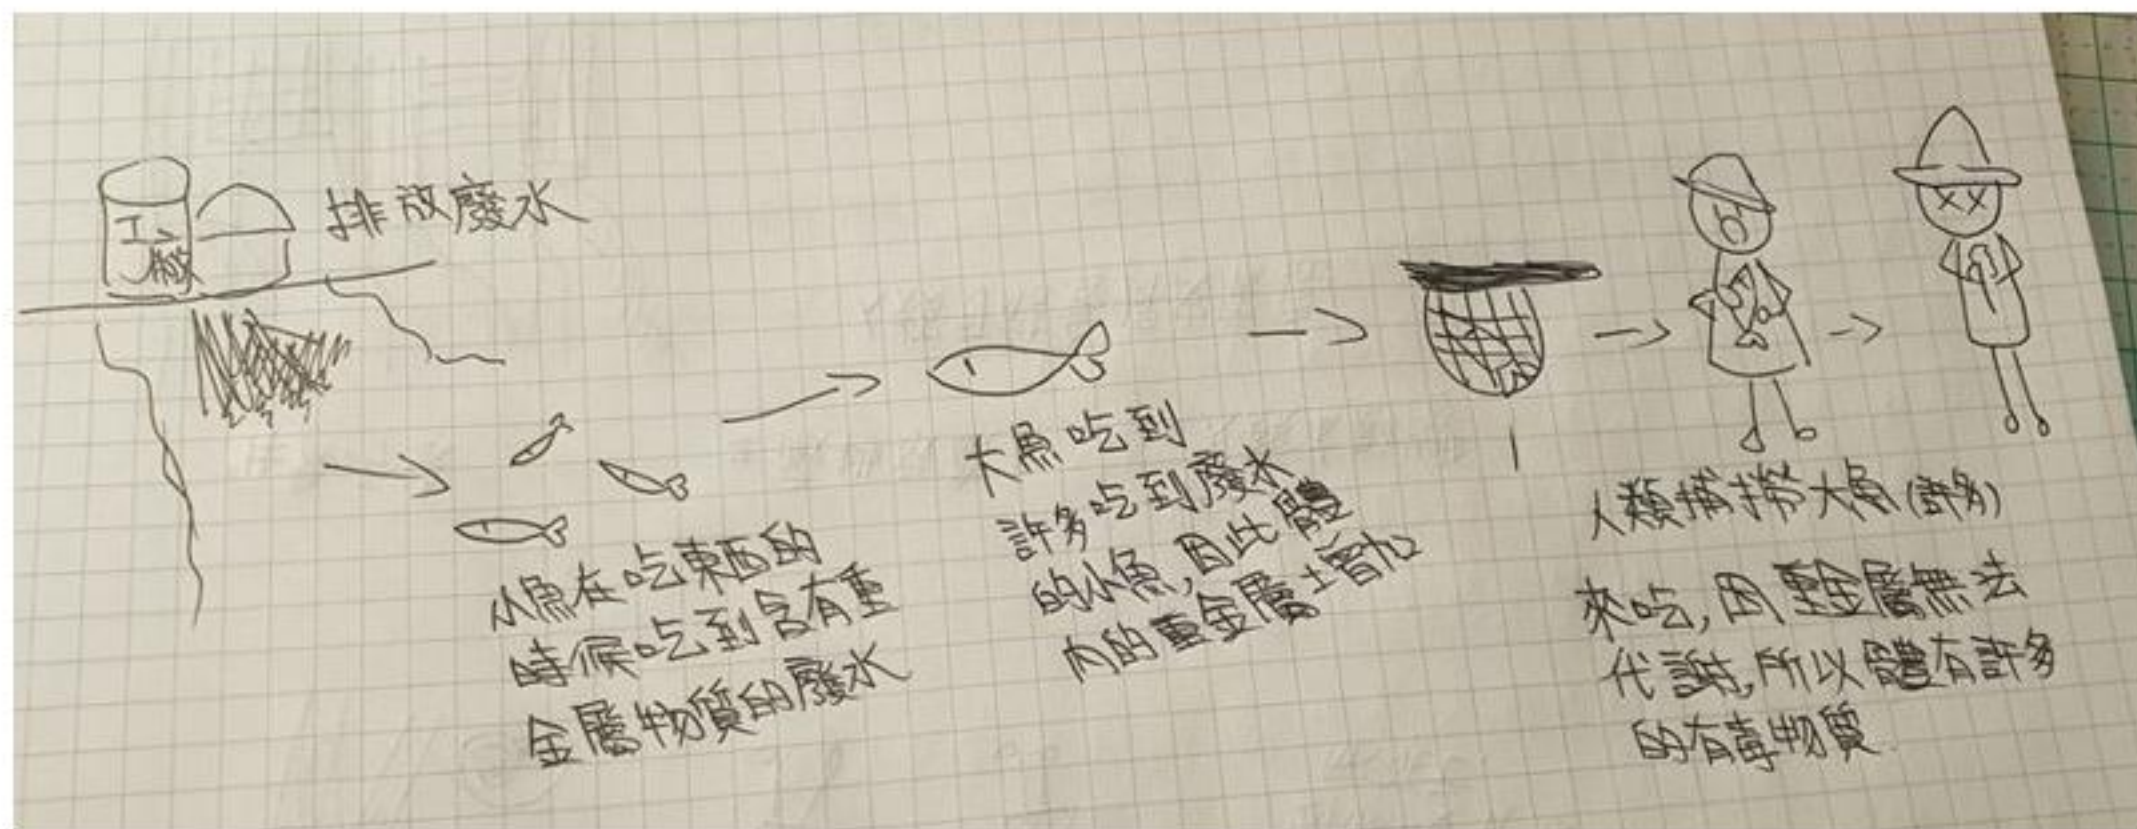 工廠
排放廢水
小魚在吃東西的
時候吃到含有重
金屬物質的廢水
大魚吃到
許多吃到廢水
的小魚,因此體
內的重金屬土曾加
人類捕撈大魚(許多)
來吃,因重金屬無法
代謝,所以體有許多
的有毒物質